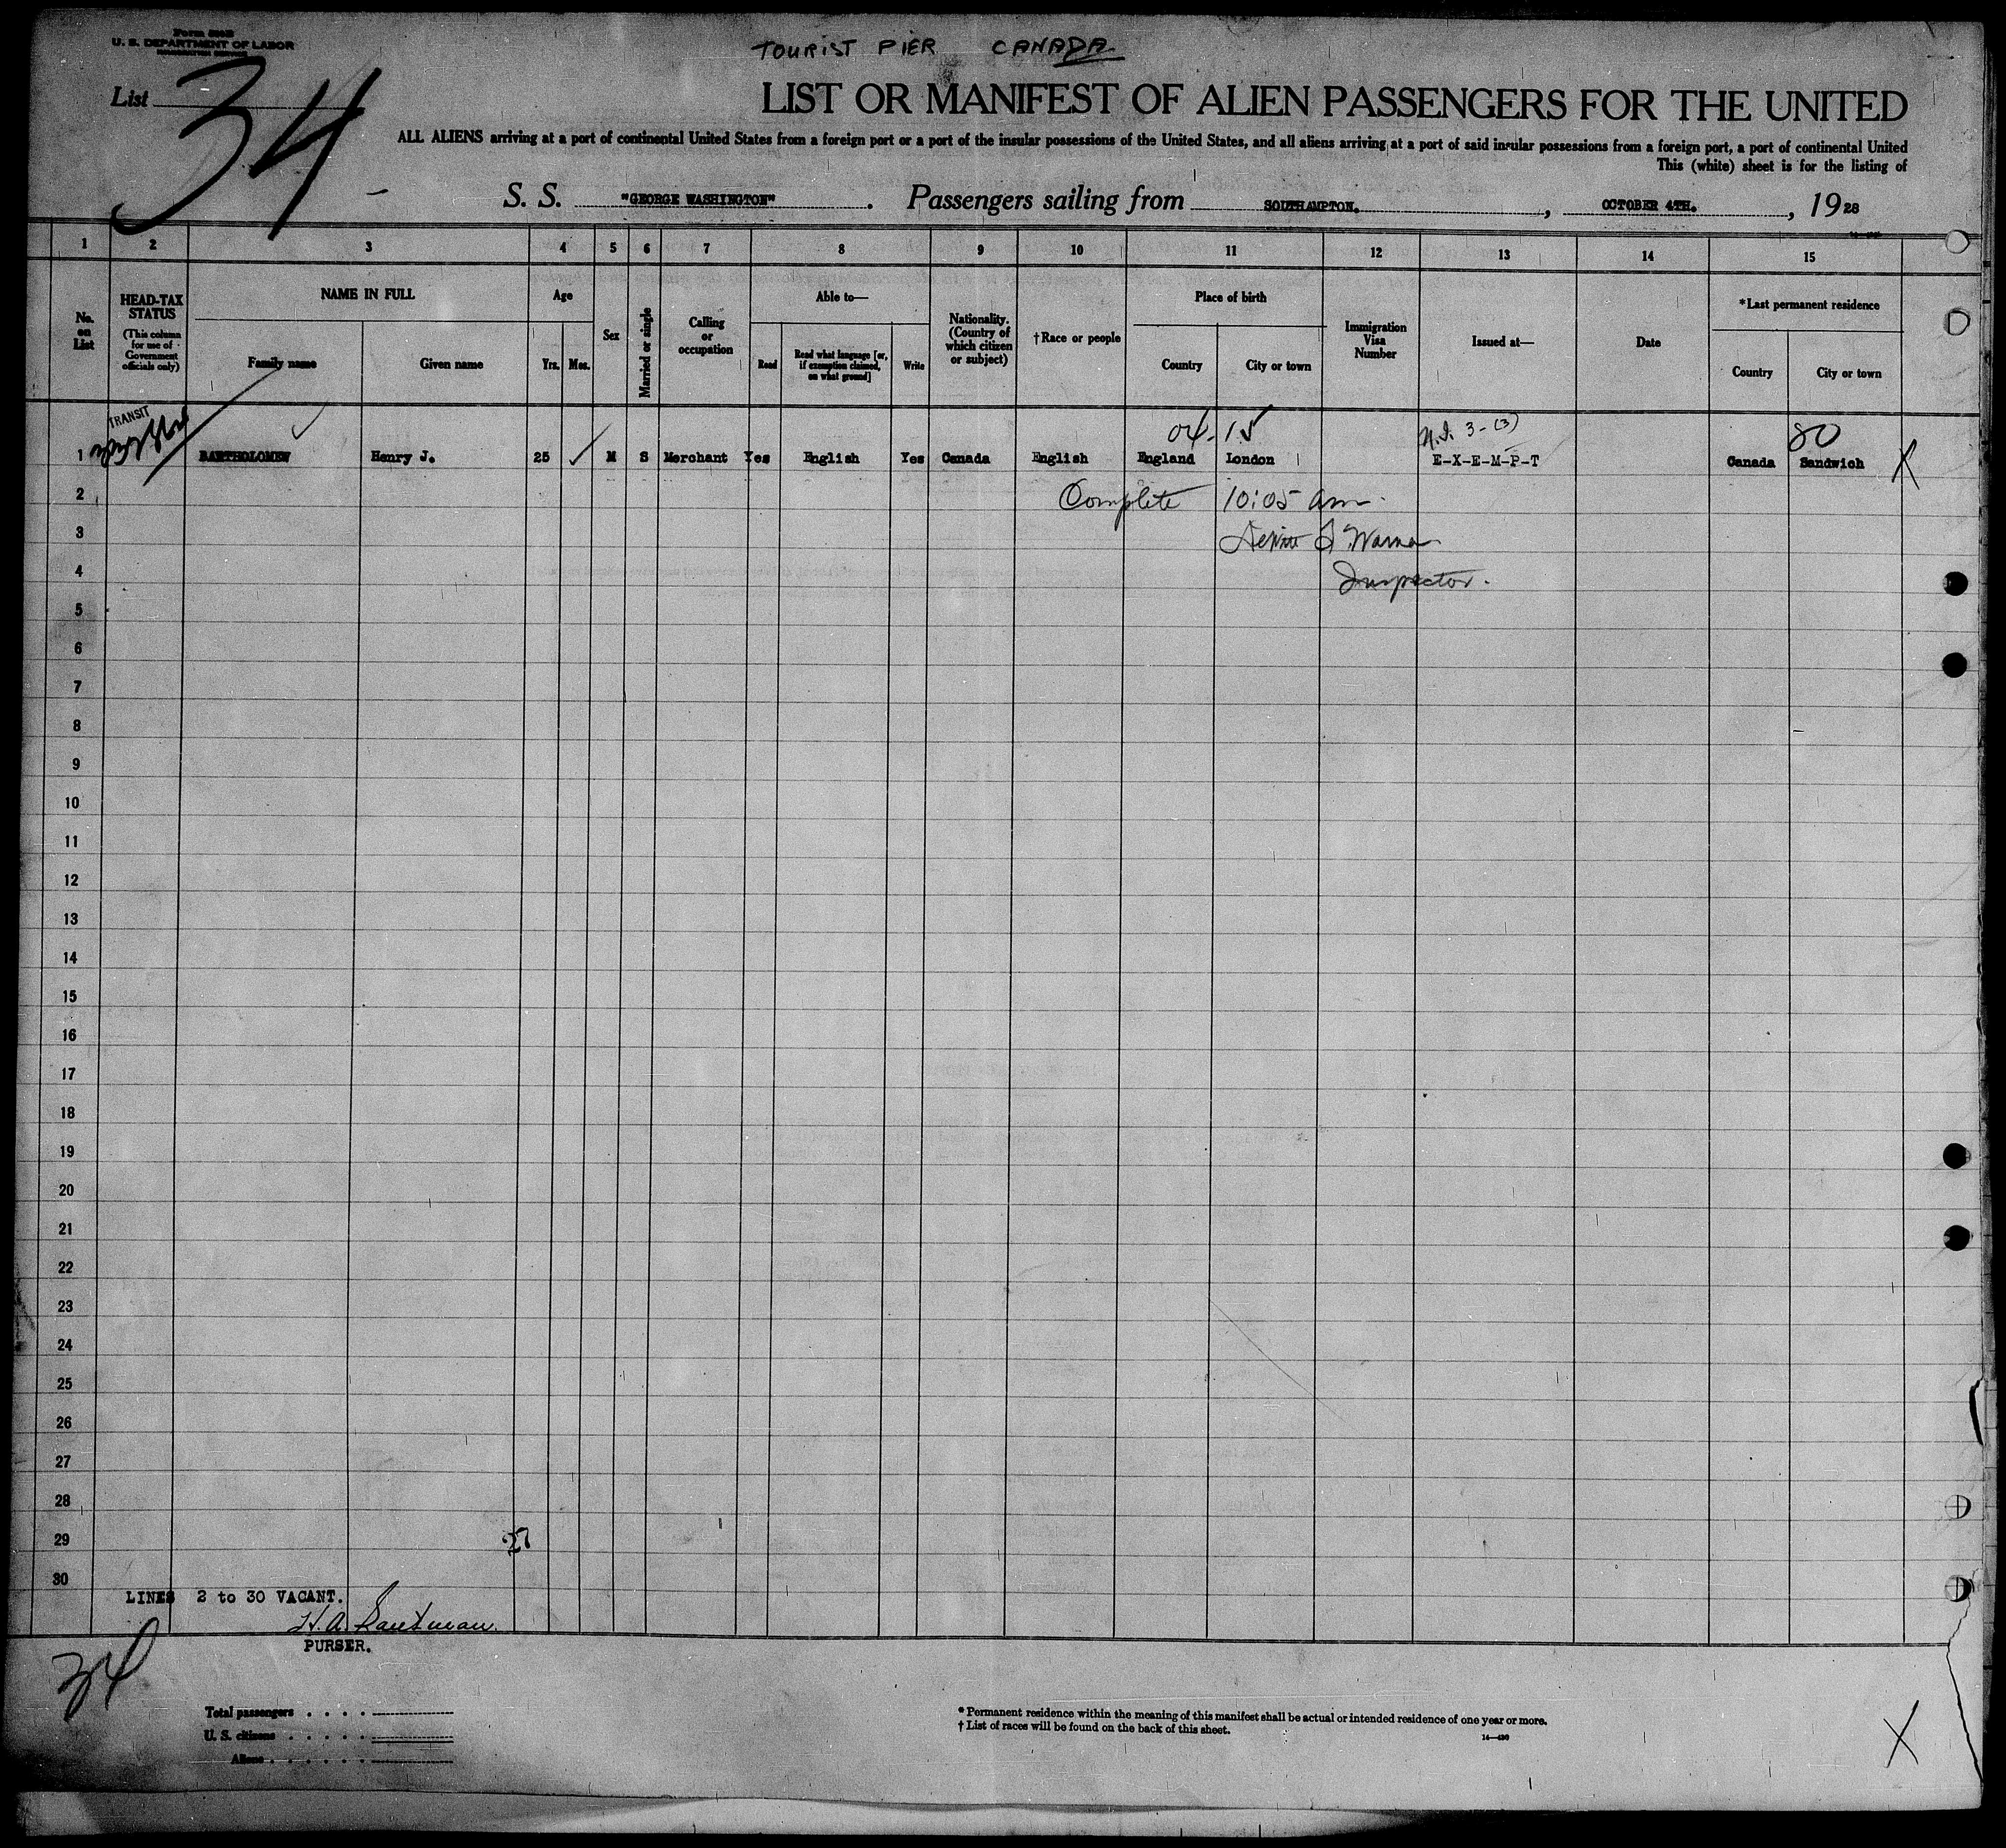 U. S. DEPARTMENT OF LABOR
TOURIST PIER CANADA
List 34
LIST OR MANIFEST OF ALIEN PASSENGERS FOR THE UNITED
ALL ALIENS arriving at a port of continental United States from a foreign port or a port of the insular possessions of the United States, and all aliens arriving at a port of said insular possessions from a foreign port, a port of continental United
This (white) sheet is for the listing of
S. S. "GEORGE WASHINGTON". Passengers sailing from SOUTHAMPTON., OCTOBER 4TH., 1928
1 2 3 4 5 6 7 8 9 10 11 12 13 14 15
No. on List
HEAD-TAX STATUS
(This column for use of Government officials only)
NAME IN FULL
Family name
Given name
Age
Yrs. Mos.
Sex
Married or single
Calling or occupation
Able to—
Read
Read what language [or, if exemption claimed, on what ground]
Write
Nationality. (Country of which citizen or subject)
†Race or people
Place of birth
Country
City or town
Immigration Visa Number
Issued at—
Date
*Last permanent residence
Country
City or town
TRANSIT
04-15
N.I. 3-(3)
80
1 BARTHOLOMEW Henry J. 25 M S Merchant Yes English Yes Canada English England London E-X-E-M-P-T Canada Sandwich X
2 Complete 10:05 am.
3
4 Inspector.
5
6
7
8
9
10
11
12
13
14
15
16
17
18
19
20
21
22
23
24
25
26
27
28
29 27
30
LINES 2 to 30 VACANT.
H. A.
PURSER.
34
Total passengers
U. S. citizens
Aliens
* Permanent residence within the meaning of this manifest shall be actual or intended residence of one year or more.
† List of races will be found on the back of this sheet.
X